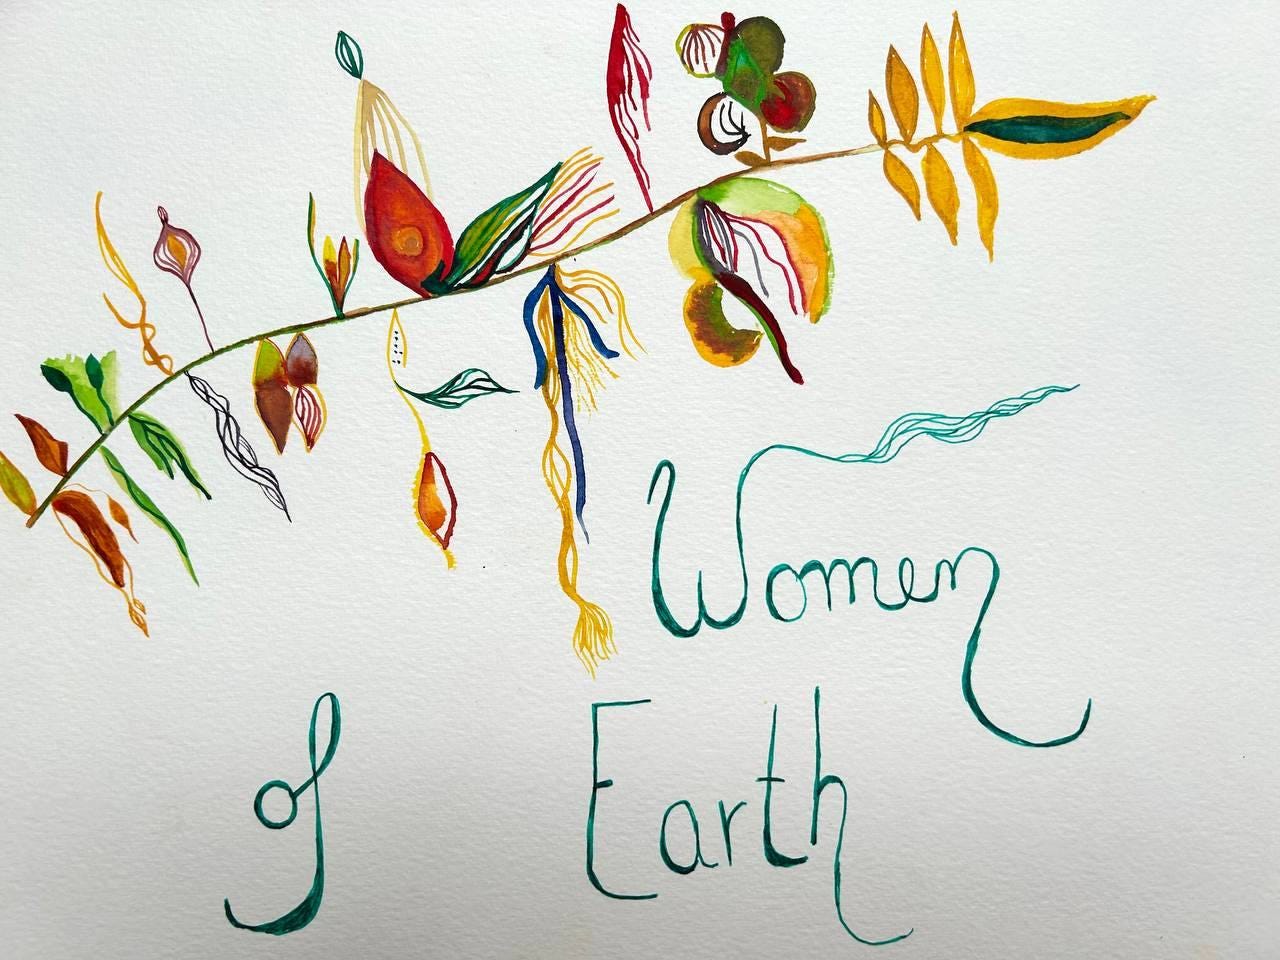 Women
of Earth